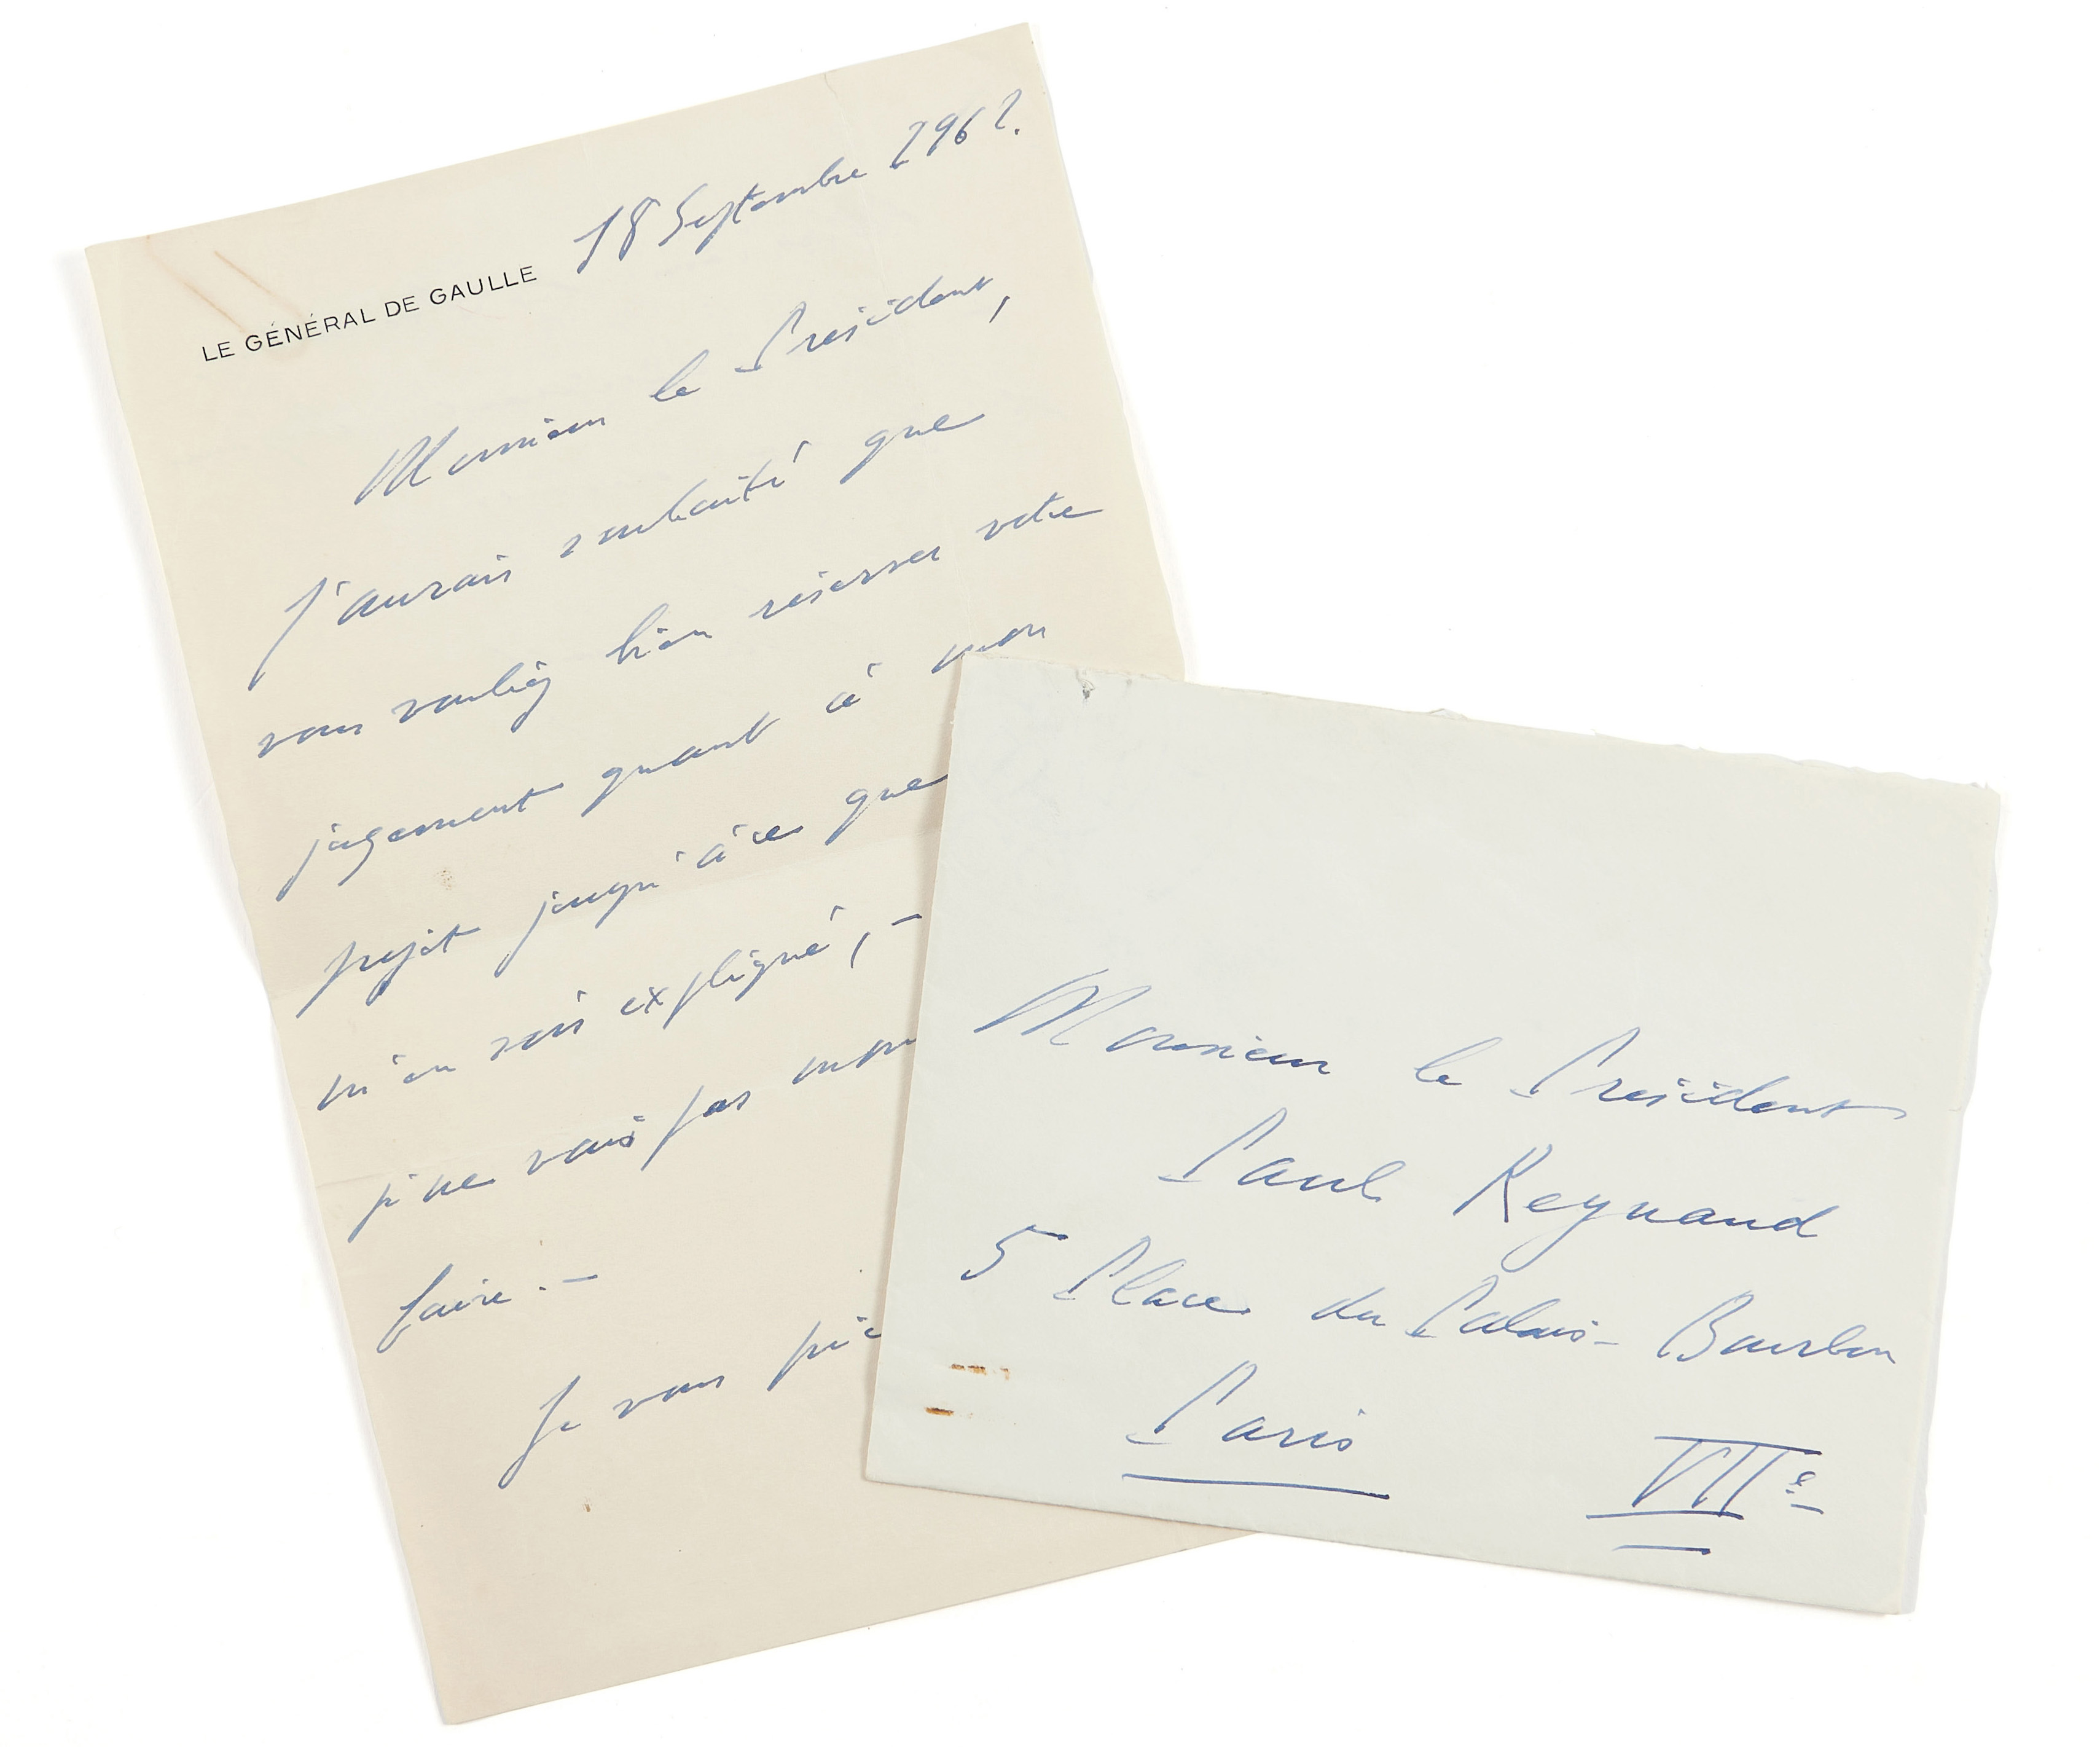 LE GÉNÉRAL DE GAULLE
18 Septembre 1962.
Monsieur le Président,
J'aurais souhaité que
vous vouliez bien réserver votre
jugement quant à mon
projet jusqu'à ce que
m'en sois expliqué, —
je ne vais pas man
faire. —
Je vous prie
Monsieur le Président
Paul Reynaud
5 Place du Palais-Bourbon
Paris
VIIe